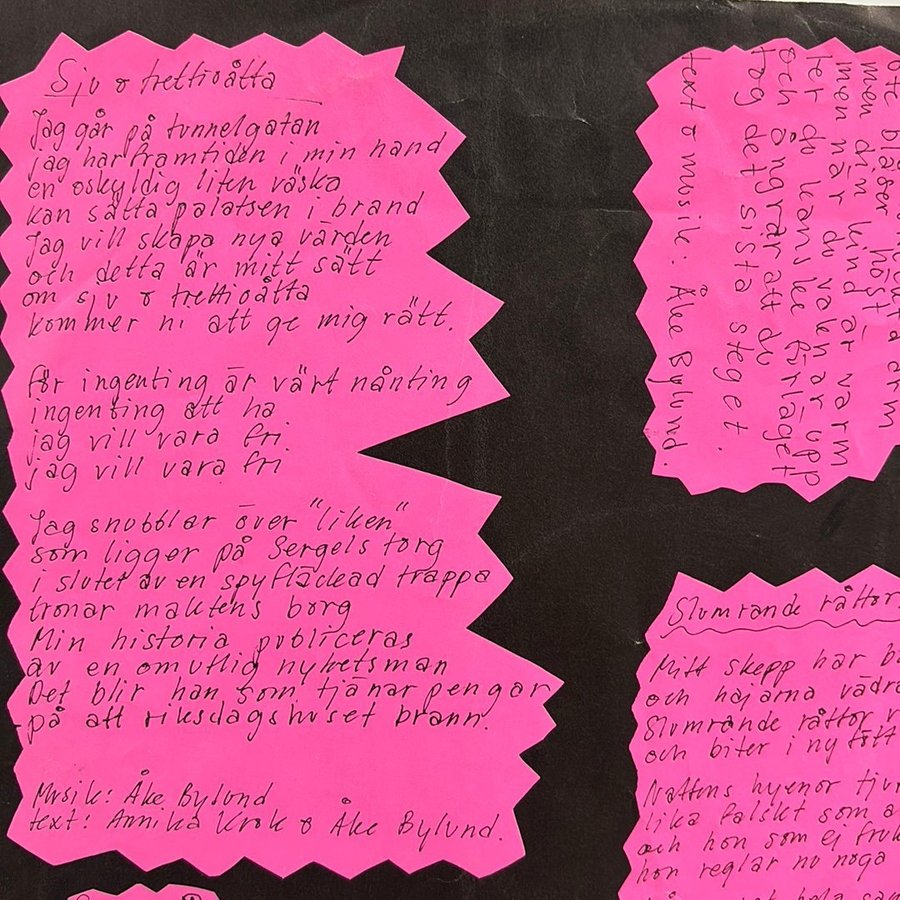 Sju o trettioåtta
Jag går på tunnelgatan
jag har framtiden i min hand
en oskyldig liten väska
kan sätta palatsen i brand
Jag vill skapa nya värden
och detta är mitt sätt
om sju o trettioåtta
kommer ni att ge mig rätt.
för ingenting är värt nånting
ingenting att ha
jag vill vara fri
jag vill vara fri
Jag snubblar över "liken"
som ligger på Sergels torg
i slutet av en spyfläckad trappa
tronar maktens borg
Min historia publiceras
av en omutlig nyhetsman
Det blir han som tjänar pengar
på att riksdagshuset brann.
Musik: Åke Bylund
text: Annika Krok o Åke Bylund.
blåser högst
men din kind är varm
men när du vaknar upp
ter du kanske förlaget
och ångrar att du
tog det sista steget.
text o musik: Åke Bylund.
Slumrande råttor
Mitt skepp har
och hajarna vädra
Slumrande råttor
och biter i ny fött
Nattens hyenor tjur
lika falskt som
och hon som ej fruk
hon reglar nu noga